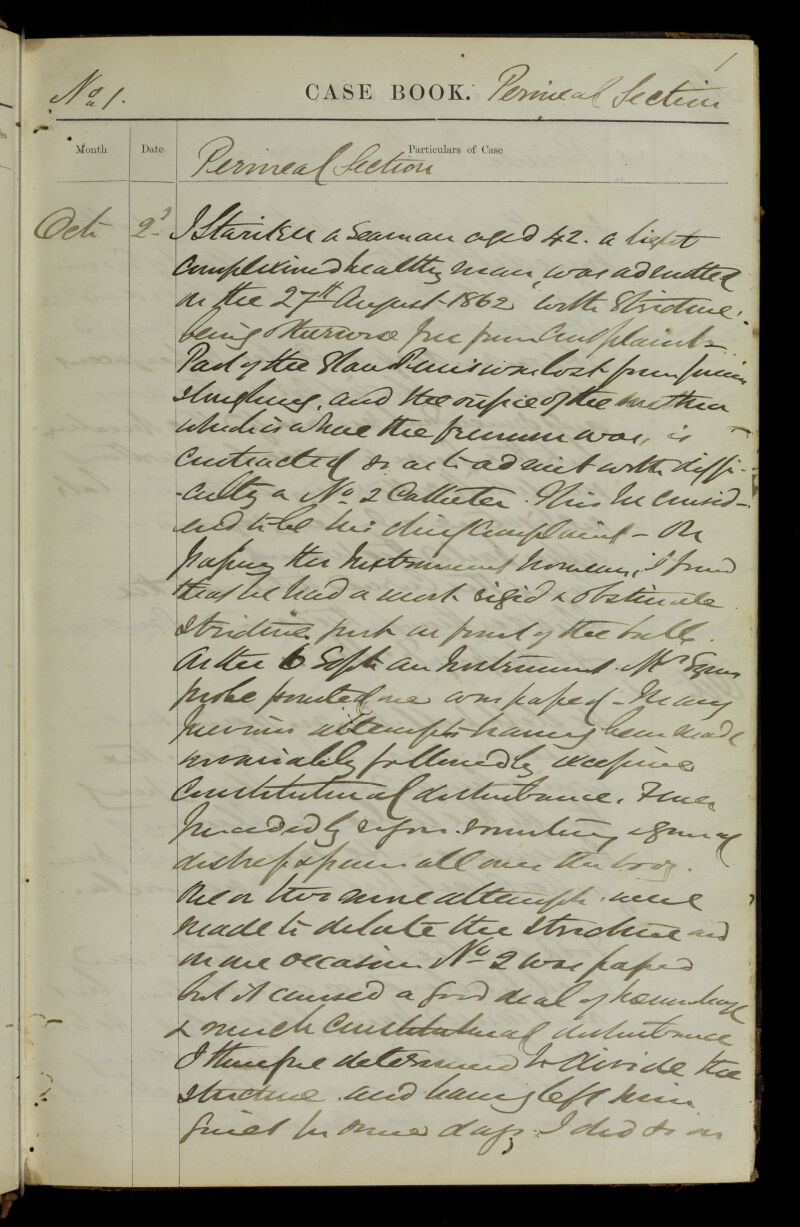 1
No 1.
CASE BOOK. Perineal Section
Month Date Particulars of Case
Perineal Section
Oct 2d J a Seaman aged 42. a light
complexioned healthy man, was admitted
on the 27th August 1862 with Stricture.
being otherwise free from Complaint
Part of the Glans Penis was lost from
sloughing, and the orifice of the urethra
which is where the frenum was, is
contracted so as to admit with diffi-
-culty a No 2 Catheter. This he consid-
-ered to be his chief complaint - On
passing the Instrument however, I found
that he had a most rigid & obstinate
stricture just in front of the bulb.
On the 6 Sept an Instrument
probe pointed one was passed - Many
previous attempts having been made
invariably followed by
Constitutional disturbance. Fever
preceded by rigor. vomiting general
distress & pain all over the body.
One or two more attempts were
made to dilate the stricture and
on one occasion No 2 was passed
but it caused a good deal of hemorrhage
& much Constitutional disturbance
I therefore determined to divide the
stricture and having left him
quiet for some days. I did so on